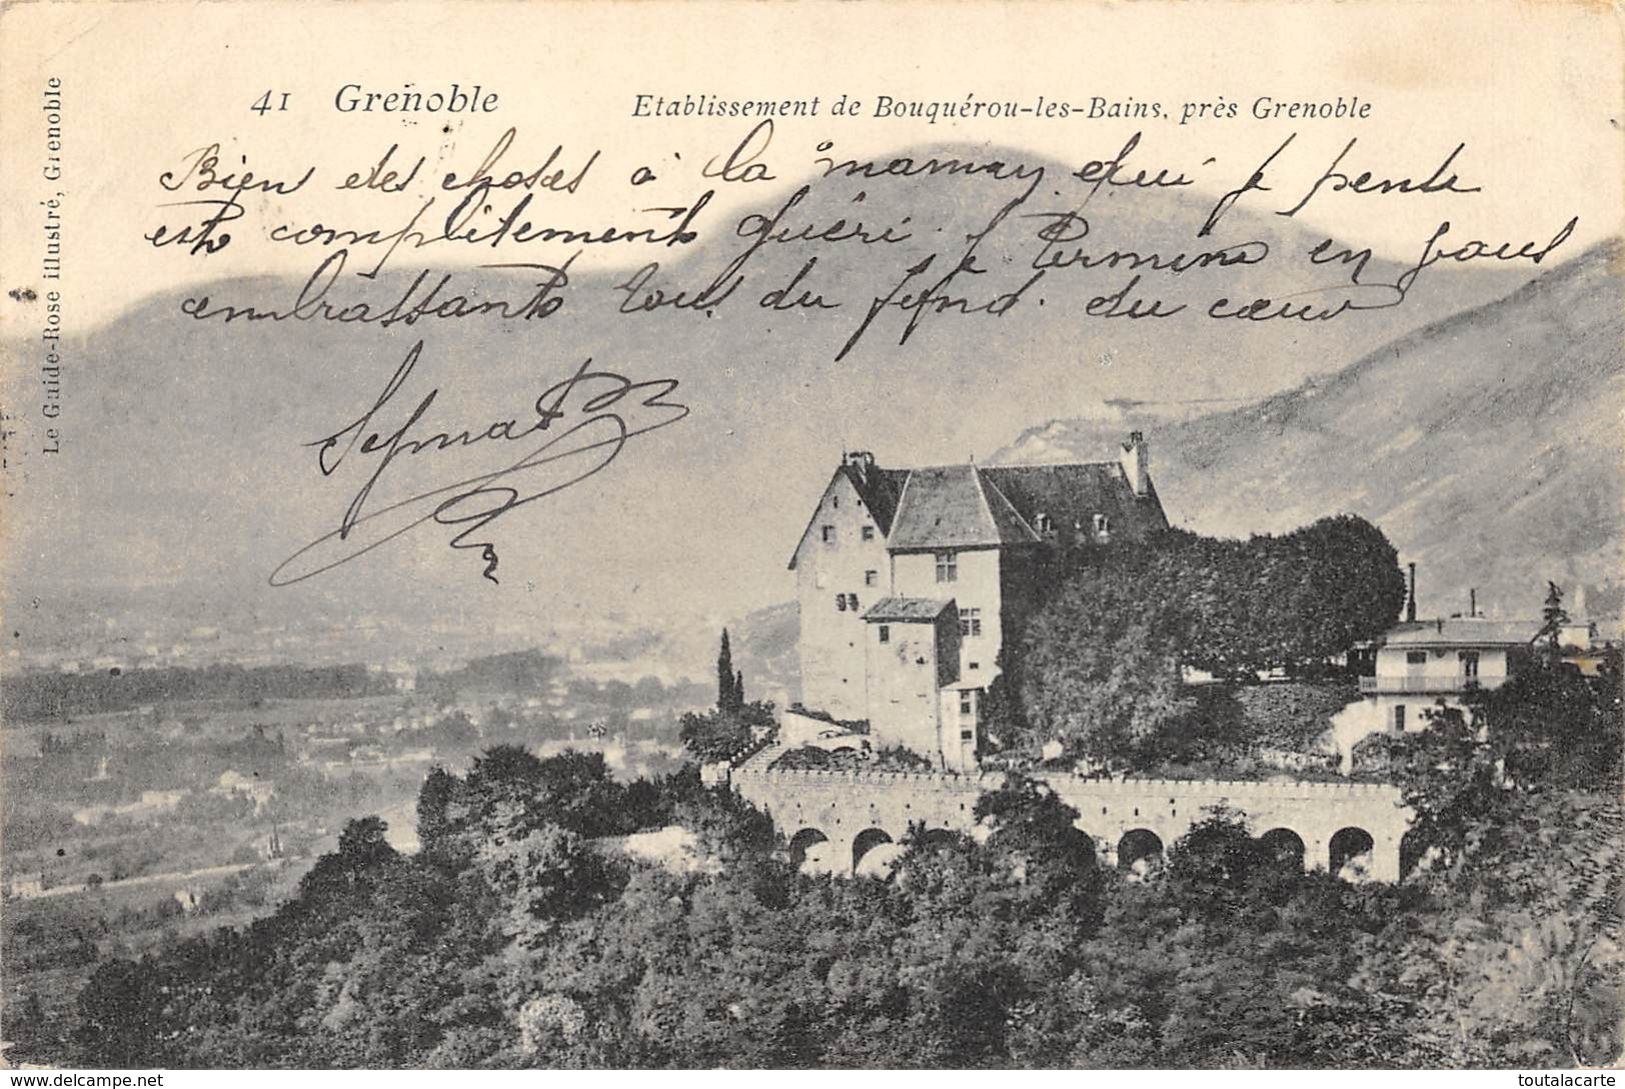 41 Grenoble
Etablissement de Bouquérou-les-Bains, près Grenoble
Le Guide-Rose illustré, Grenoble
Bien des choses à la maman qui je pense
est complètement guéri. je termine en vous
embrassant tous du fond. du cœur
toutalacarte-Delcampe.net
toutalacarte